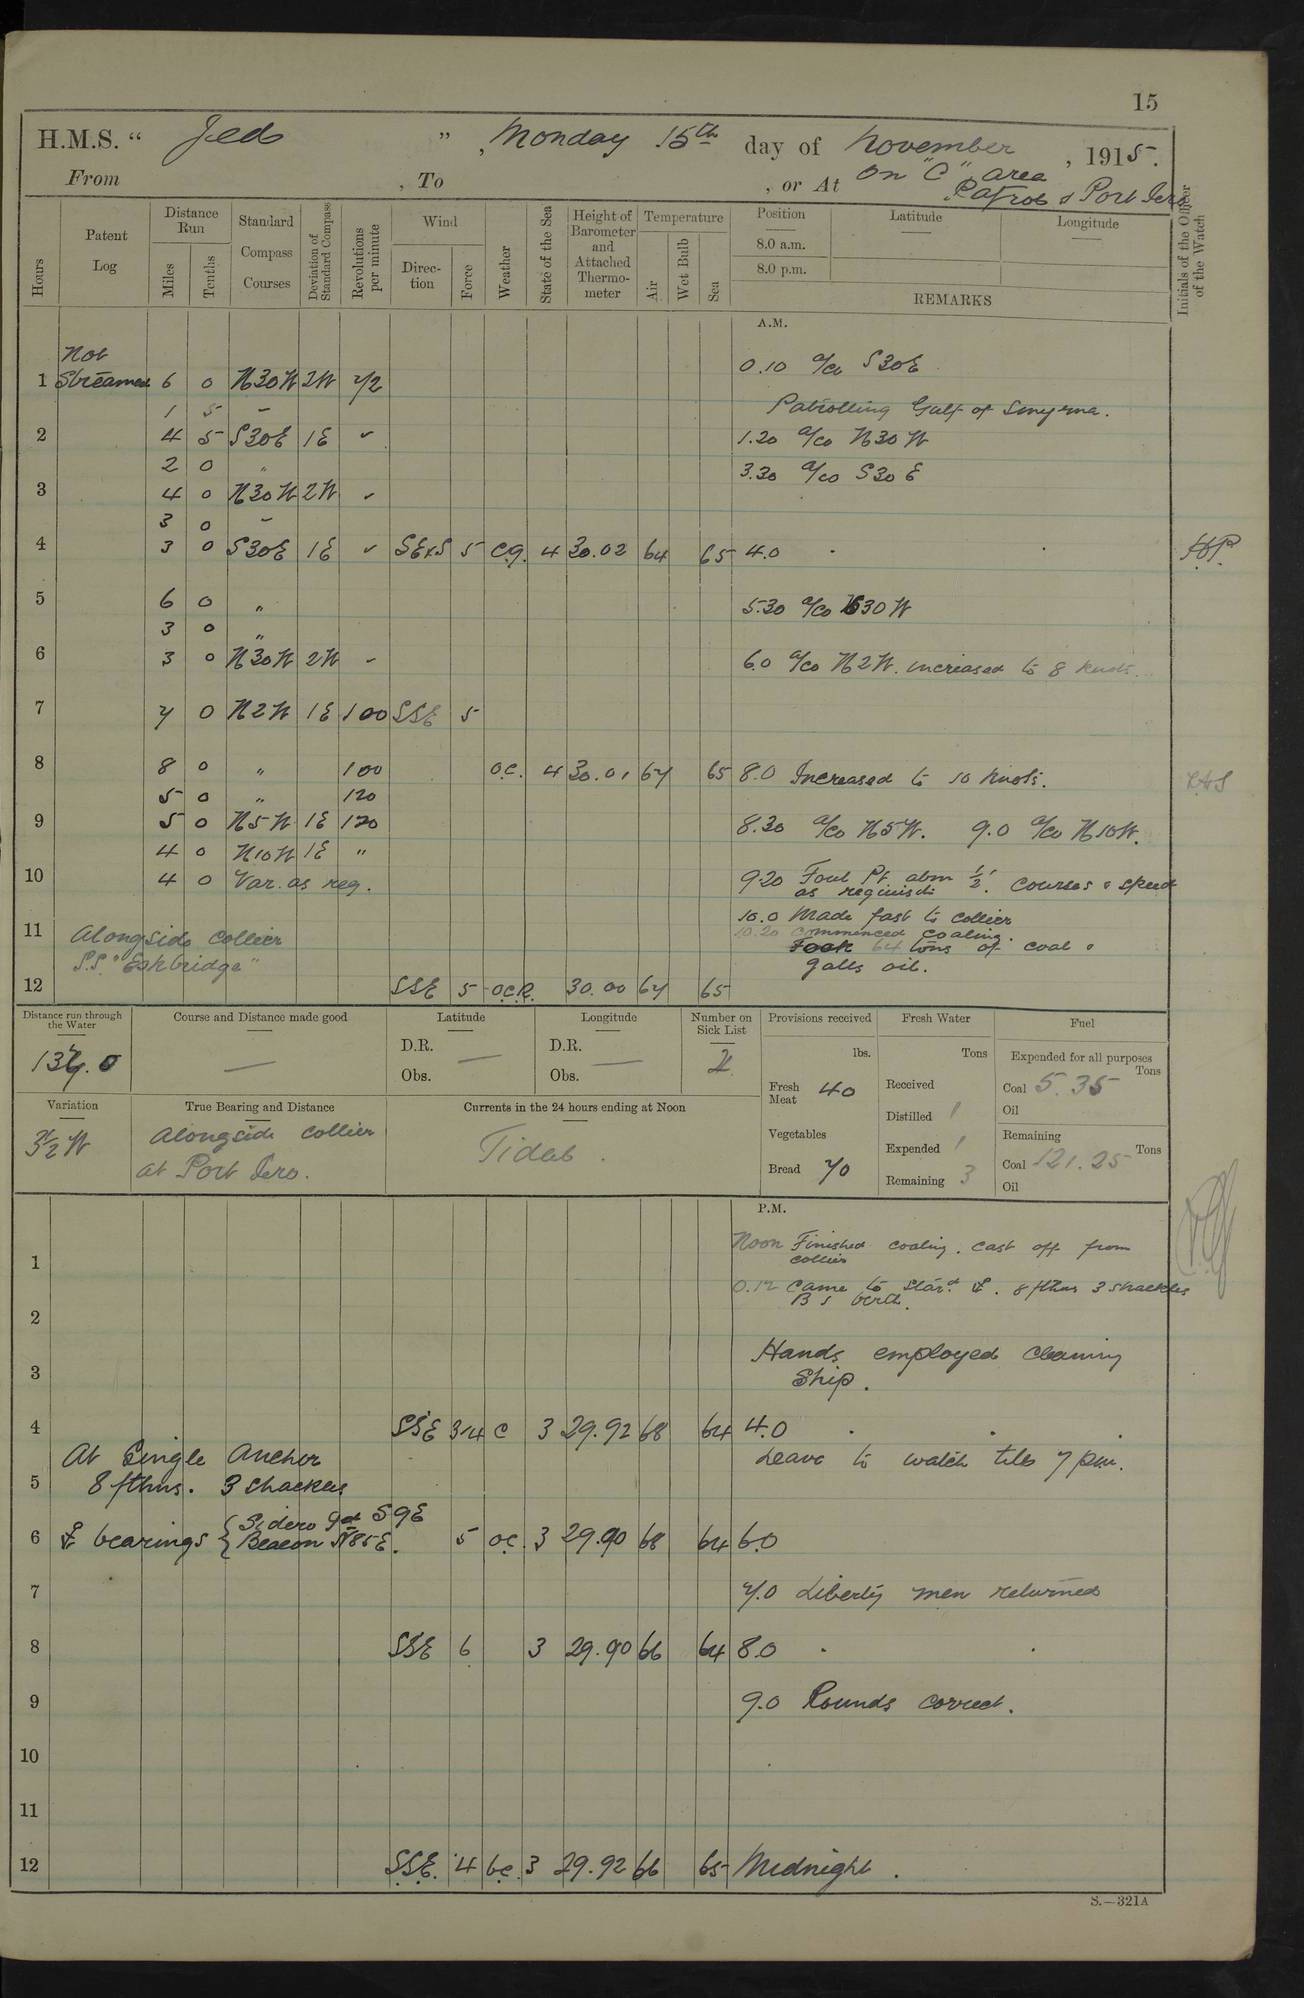 15
H.M.S. “ Jed ” , Monday 15th day of November , 1915.
From , To , or At On "C" area
Patrol & Port Iero
Hours
Patent Log
Distance Run
Miles
Tenths
Standard Compass Courses
Deviation of Standard Compass
Revolutions per minute
Wind
Direction
Force
Weather
State of the Sea
Height of Barometer and Attached Thermometer
Temperature
Air
Wet Bulb
Sea
Position
Latitude
Longitude
8.0 a.m.
8.0 p.m.
REMARKS
Initials of the Officer of the Watch
A.M.
Not
0.10 a/co S30E
1 Streamed 6 0 N30W 2W 72
1 5 "
Patrolling Gulf of Smyrna.
2 4 5 S30E 1E "
1.20 a/co N30W
2 0 "
3.30 a/co S30E
3 4 0 N30W 2W "
3 0 "
4 3 0 S30E 1E " SExS 5 c.q. 4 30.02 64 65 4.0
5 6 0 "
5.30 a/co N30W
3 0 "
6 3 0 N30W 2W "
6.0 a/co N2W. increased to 8 knots.
7 7 0 N2W 1E 100 SSE 5
8 8 0 " 100 o.c. 4 30.01 67 65 8.0 Increased to 10 knots.
5 0 " 120
9 5 0 N5W 1E 120
8.30 a/co N5W. 9.0 a/co N10W.
4 0 N10W 1E "
10 4 0 Var. as req.
9.20 Foul Pt abm ½'. Courses & speed
as requisite
10.0 Made fast to collier
10.20 Commenced coaling.
11 Alongside collier
Took 64 tons of coal &
S.S. "Eskbridge"
galls oil.
12 SSE 5 o.c.R. 30.00 67 65
Distance run through the Water
137.0
Course and Distance made good
—
Latitude
D.R. —
Obs.
Longitude
D.R. —
Obs.
Number on Sick List
2
Provisions received
lbs.
Fresh Meat 40
Vegetables
Bread 70
Fresh Water
Tons
Received
Distilled 1
Expended 1
Remaining 3
Fuel
Expended for all purposes
Tons
Coal 5.35
Oil
Remaining
Tons
Coal 121.25
Oil
Variation
3½ W
True Bearing and Distance
Alongside collier
at Port Iero.
Currents in the 24 hours ending at Noon
Tidal.
P.M.
Noon Finished coaling. Cast off from
collier
1
0.12 Came to Starbd ⚓. 8 fthms 3 shackles
B 5 berth.
2
Hands employed cleaning
3
Ship.
4 SSE 3-4 c 3 29.92 68 64 4.0
At Single Anchor
Leave to watch till 7 pm.
5 8 fthms. 3 shackles
Sidero S 9 E
6 ⚓ bearings Beacon N85E. 5 oc. 3 29.90 68 64 6.0
7 7.0 Liberty men returned
8 SSE 6 3 29.90 66 64 8.0
9 9.0 Rounds correct.
10
11
12 SSE. 4 bc. 3 29.92 66 65 Midnight.
S.—321A